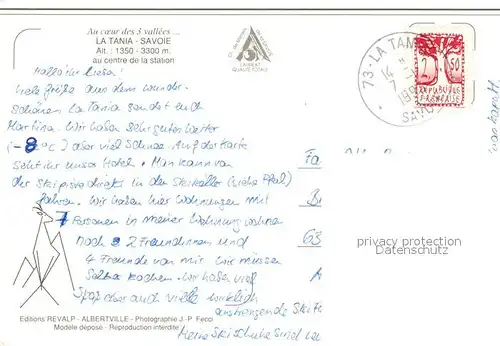 Au cœur des 3 vallées ...
LA TANIA - SAVOIE
Alt. : 1350 - 3300 m.
au centre de la station
73 - LA TANIA
14
7
SAVOIE
2 50
REPUBLIQUE
FRANÇAISE
Hallo ihr Lieben!
Viele Grüße aus dem wunder-
schönen La Tania sendet euch
Martina. Wir haben sehr gutes Wetter
(-8°C) aber viel Schnee. Auf der Karte
seht ihr unser Hotel. Man kann von
der Skipiste direkt in den Skikeller (siehe Pfeil)
fahren. Wir haben hier Wohnungen mit
7 Personen in meiner Wohnung wohnen
noch 2 Freundinnen und
4 Freunde von mir wir müssen
selber kochen. Wir haben viel
Spaß aber auch viele wirklich
anstrengende
Meine Skischuhe sind
Fa
B
63
A
privacy protection
Datenschutz
Editions REVALP - ALBERTVILLE - Photographie J.-P. Fecci
Modèle déposé - Reproduction interdite